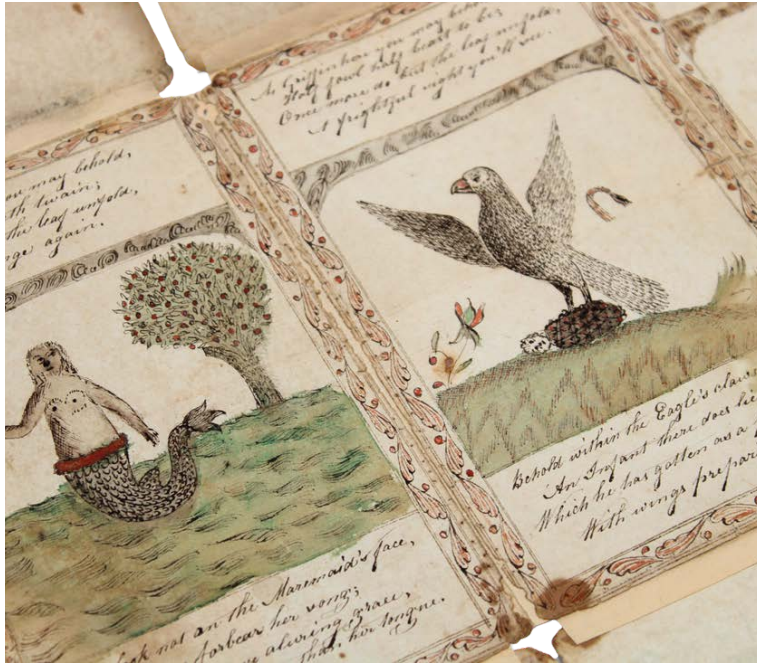 you may behold,
th twain;
the leaf unfold,
nge again.
A Griffin how you may beho
Half fowl half beast to be;
Once more do but the leaf unfold,
A frightful sight you'll see.
look not on the Maremaid's face,
forbear her song;
aluring grace,
than her tongue.
Behold within the Eagle's claws
An Infant there does lie
Which he has gotten as a
With wings prepar